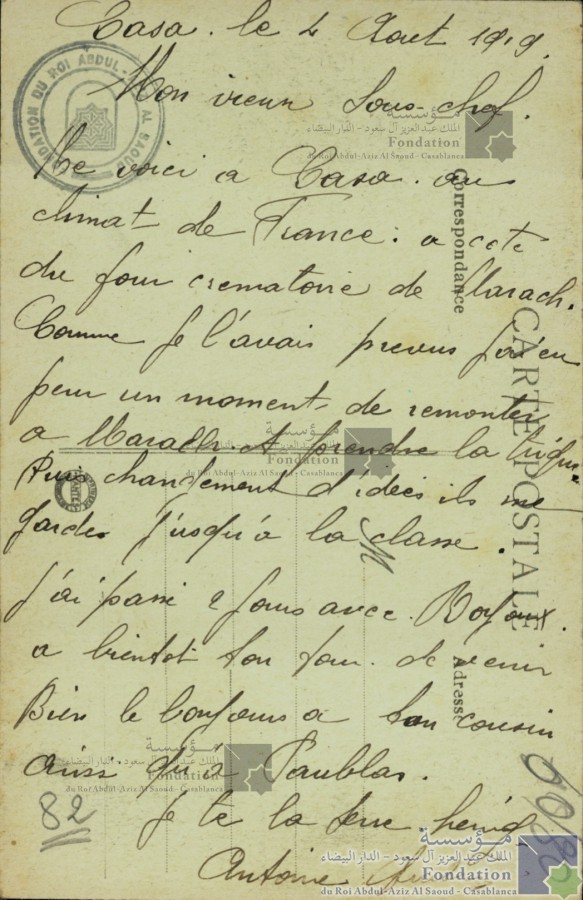 Casa. le 4 Aout 1919.
Mon vieux Sous-chef.
Me voici a Casa. au
climat de France: a cote
du four crematoire de Marach.
Comme je l'avais prevus j'ai eu
peur un moment de remonter
a Marach. et prendre la
Puis changement d'idées ils me
gardes jusqu'a la classe.
j'ai passé 2 jours avec
a bientot ton tour de venir
Bien le bonjours a ton cousin
ainsi qu'a
Je te la serre
Antoine
82
CARTE POSTALE
Correspondance
Adresse
FONDATION DU ROI ABDUL-AZIZ AL SAOUD
مؤسسة
الملك عبدالعزيز آل سعود - الدار البيضاء
Fondation
du Roi Abdul-Aziz Al Saoud - Casablanca
مؤسسة
Fondation
du Roi Abdul-Aziz Al Saoud - Casablanca
مؤسسة
الملك عبدالعزيز آل سعود - الدار البيضاء
Fondation
du Roi Abdul-Aziz Al Saoud - Casablanca
مؤسسة
الملك عبدالعزيز آل سعود - الدار البيضاء
Fondation
du Roi Abdul-Aziz Al Saoud - Casablanca